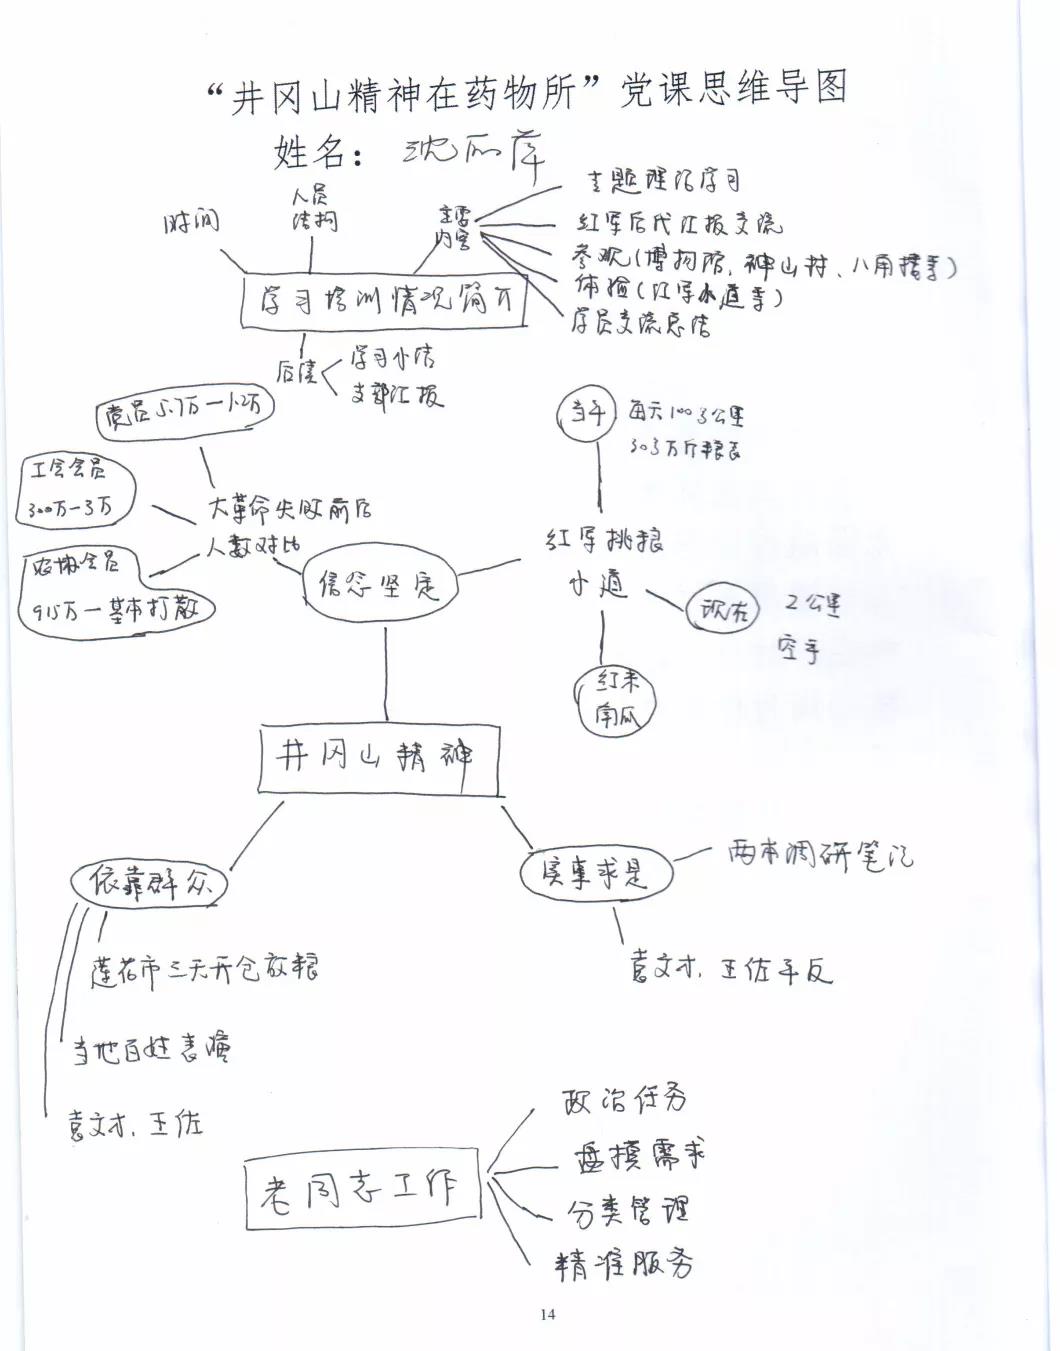 “井冈山精神在药物所”党课思维导图
姓名：沈丽萍
时间
人员
结构
主要
内容
主题理论学习
红军后代汇报交流
参观(博物馆,神山村、八角楼等)
体验(红军小道等)
学员交流总结
学习培训情况简介
后续
学习小结
支部汇报
党员5.7万—1.2万
工会会员
300万—3万
农协会员
915万—基本打散
大革命失败前后
人数对比
信念坚定
当年
每天100多公里
30多万斤粮食
红军挑粮
小道
现在
2公里
空手
红米
南瓜
井冈山精神
依靠群众
莲花市三天开仓放粮
当地百姓表演
袁文才,王佐
实事求是
两本调研笔记
袁文才,王佐平反
老同志工作
政治任务
盘摸需求
分类管理
精准服务
14